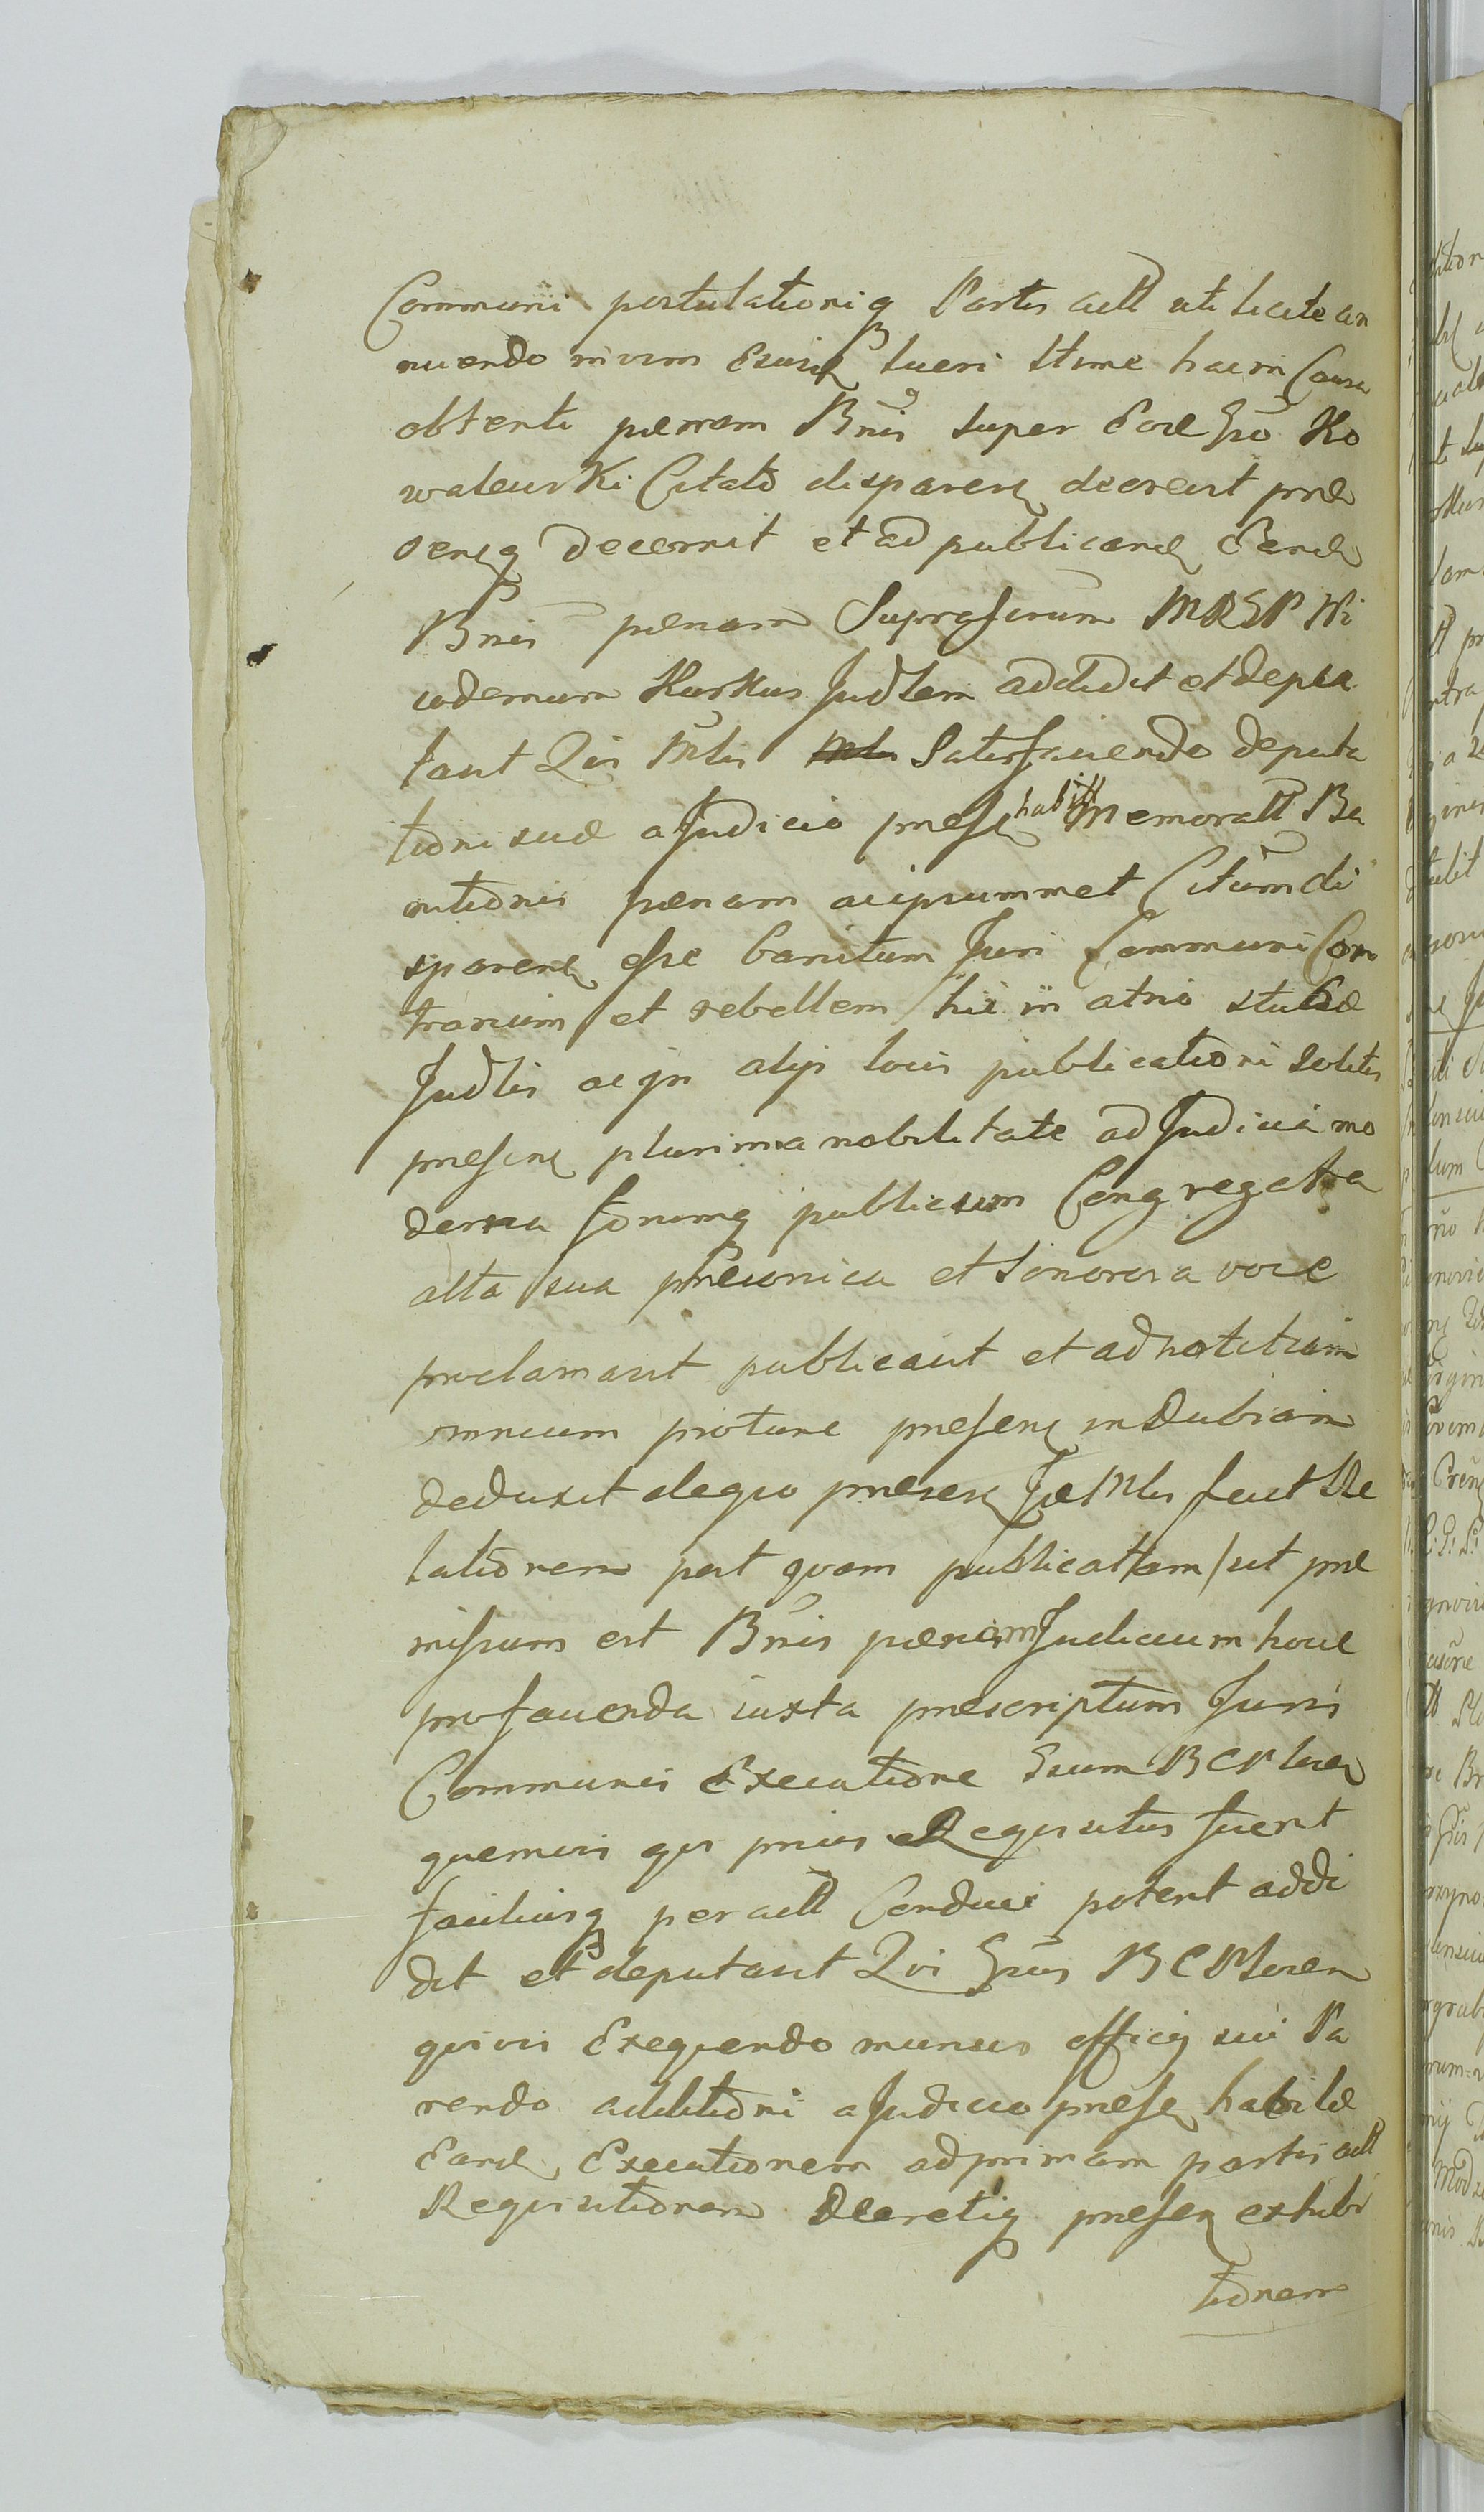 Communi postulationiq Partis actt uti licite an
nuendo nivim lueri Causa
obtenti pænam Bnis super Eodē Gso Ko
walewski Citato disparen decrevit præ
sensq decernit et ad publicand Eand
Bnis pænam Suprascrium MRGP Ni
codemum Kuskus Judlem addidit et depu
tavit Qui Mlis Satisfaciendo deputa
tioni suæ a Judicio præse habitt Memoratt Ba
nitionis pænam acipsummet Citum di
sparen esse banitum Juri Communi Con
trarium et rebellem hic in atrio stubæ
Judlis acqs alijs locis publicationi solitis
præsen plurima nobilitate ad Judicia mo
derna forumq publicum Congregata
alta sua præconica et sonorosa voce
proclamavit publicavit et ad notitiam
omnium protunc præsens indubiam
deduxit deqvo præsens Mlis fecit Re
lationem post qvam publicattam ut præ
missum est Bnis pænam Judicium hocce
pro facienda iuxta præscriptum Juris
Communis Executione Gsum B C P loren
quemvis qvi prius Reqvisitus fuerit
faciliusq per actt Conduci poterit addi
dit et deputavit Qvi Gsus B C P loren
qvivis Exeqvendo munus officij sui Pa
rendo additioni a Judicio præse habitæ
Eand Executionem ad primam partis actt
Reqvisitionem Decretiq præsen exhibi
tionem